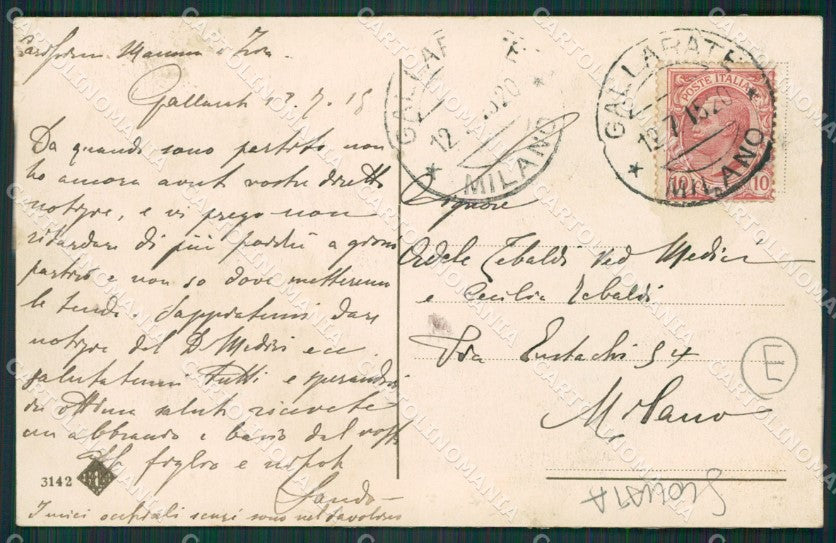 Carissime Mamma e Zia.
Gallarate 13.7.15
Da quando sono partito non
ho ancora avuto vostre dirette
notizie, e vi prego non
ritardare di più perchè a giorni
partirò e non so dove metteremo
le tende. Sappiatemi dare
notizie del D Medici ecc
salutatemi tutti e sperandovi
in ottima salute ricevete
un abbraccio e bacio dal vostro
figlio e nipote
Sando
I miei occhiali scuri sono nel tavolino
3142
GALLARATE
12 15 20
MILANO
GALLARATE
12 7 15 20
MILANO
POSTE ITALIANE
10 10
Signore
Adele Tebaldi Ved Medici
e Cecilia Tebaldi
Via Eustachi 54
Milano
E
SCOLLATA
CARTOLINOMANIA